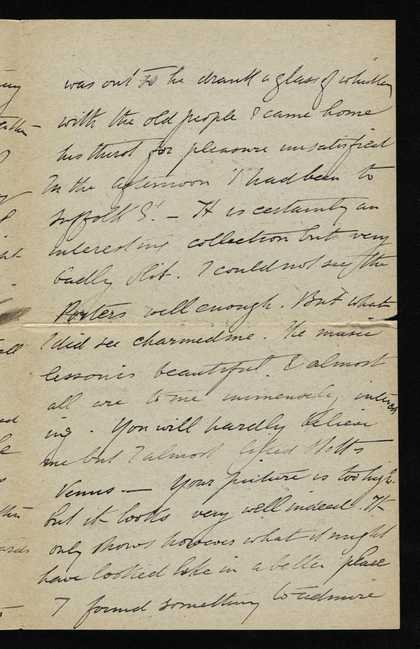 was out so he drank a glass of whisky
with the old people & came home
his thirst for pleasure unsatisfied
In the afternoon I had been to
Suffolk St. – It is certainly an
interesting collection but very
badly lit. I could not see the
Posters well enough. But what
I did see charmed me. The music
lesson is beautiful & almost
all are to me immensely interest
ing. You will hardly believe
me but I almost liked Stott's
Venus – Your picture is too high.
but it looks very well indeed. It
only shows however what it might
have looked like in a better place
I found something to admire